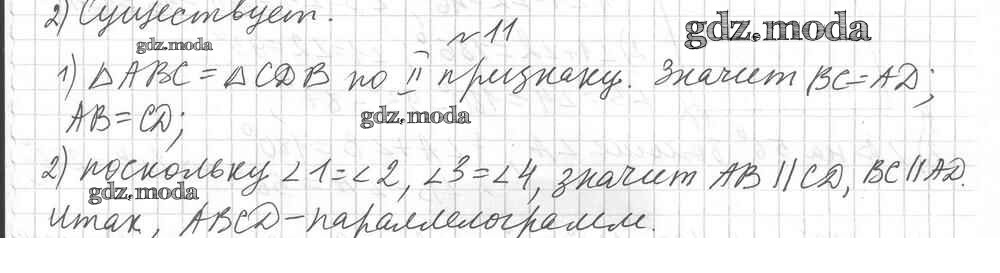 2) Существует.
gdz.moda
№ 11
gdz.moda
1) △ABC = △CDB по II признаку. Значит BC=AD;
AB=CD;
gdz.moda
2) поскольку ∠1=∠2, ∠3=∠4, значит AB || CD, BC || AD.
gdz.moda
Итак, ABCD – параллелограмм.